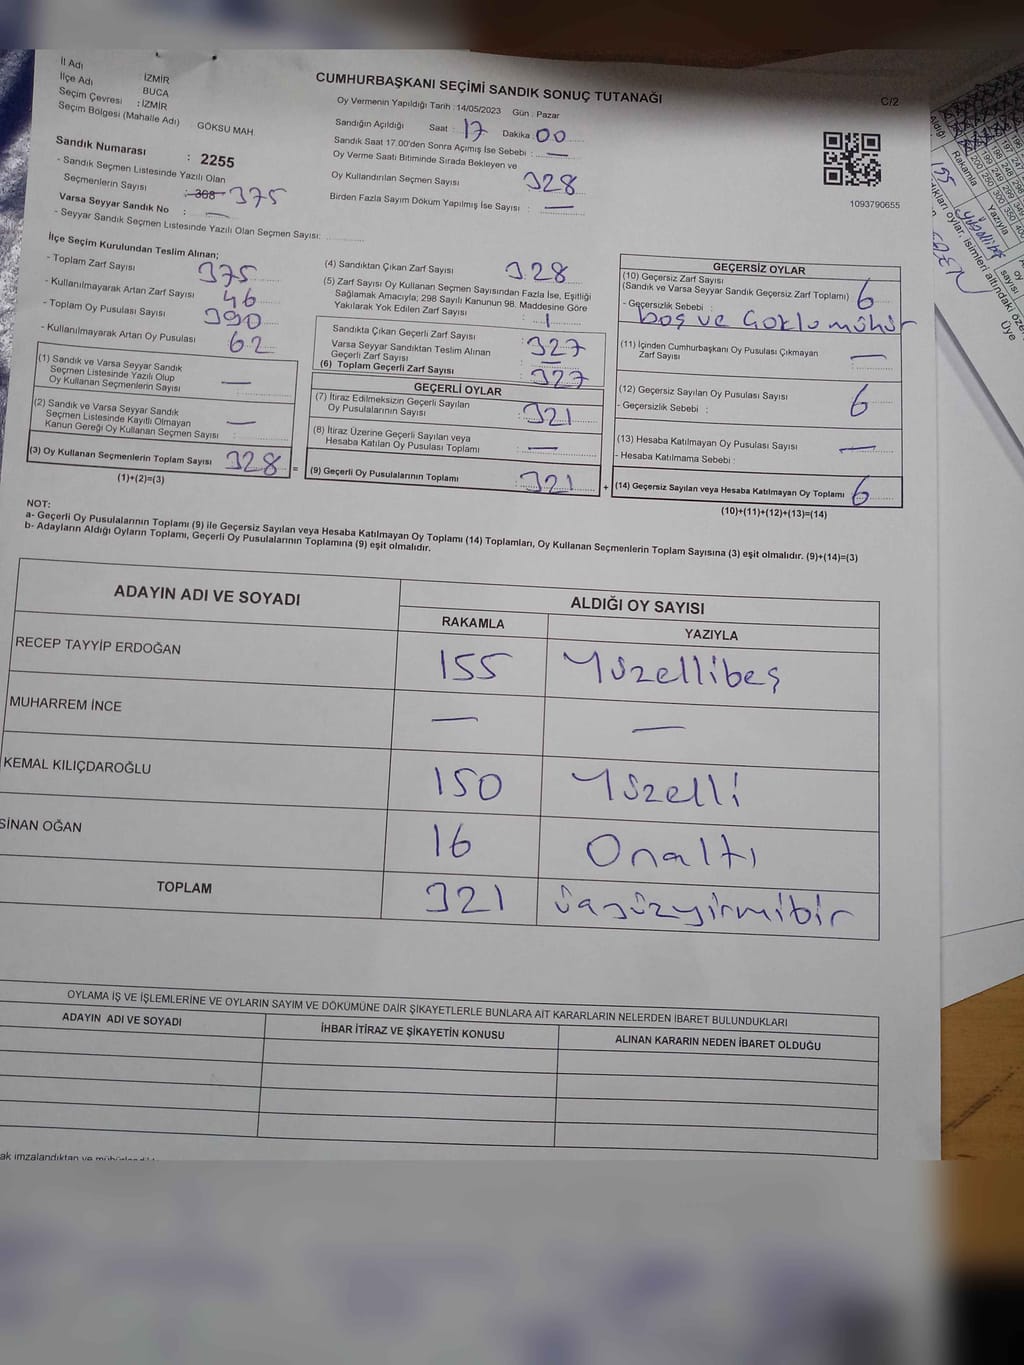 İl Adı
İZMİR
İlçe Adı
BUCA
Seçim Çevresi : İZMİR
Seçim Bölgesi (Mahalle Adı) GÖKSU MAH.
CUMHURBAŞKANI SEÇİMİ SANDIK SONUÇ TUTANAĞI
C/2
Oy Vermenin Yapıldığı Tarih : 14/05/2023 Gün : Pazar
Sandığın Açıldığı Saat : 17 Dakika 00
Sandık Saat 17.00'den Sonra Açımış İse Sebebi : —
Oy Verme Saati Bitiminde Sırada Bekleyen ve
Oy Kullandırılan Seçmen Sayısı 328
Birden Fazla Sayım Döküm Yapılmış İse Sayısı : —
1093790655
Sandık Numarası : 2255
- Sandık Seçmen Listesinde Yazılı Olan
Seçmenlerin Sayısı : 368 375
Varsa Seyyar Sandık No : —
- Seyyar Sandık Seçmen Listesinde Yazılı Olan Seçmen Sayısı:
İlçe Seçim Kurulundan Teslim Alınan;
- Toplam Zarf Sayısı 375
- Kullanılmayarak Artan Zarf Sayısı 46
- Toplam Oy Pusulası Sayısı 390
- Kullanılmayarak Artan Oy Pusulası 62
(1) Sandık ve Varsa Seyyar Sandık
Seçmen Listesinde Yazılı Olup
Oy Kullanan Seçmenlerin Sayısı —
(2) Sandık ve Varsa Seyyar Sandık
Seçmen Listesinde Kayıtlı Olmayan
Kanun Gereği Oy Kullanan Seçmen Sayısı —
(3) Oy Kullanan Seçmenlerin Toplam Sayısı 328 =
(1)+(2)=(3)
(4) Sandıktan Çıkan Zarf Sayısı 328
(5) Zarf Sayısı Oy Kullanan Seçmen Sayısından Fazla İse, Eşitliği
Sağlamak Amacıyla; 298 Sayılı Kanunun 98. Maddesine Göre
Yakılarak Yok Edilen Zarf Sayısı : 1
Sandıkta Çıkan Geçerli Zarf Sayısı : 327
Varsa Seyyar Sandıktan Teslim Alınan
Geçerli Zarf Sayısı —
(6) Toplam Geçerli Zarf Sayısı 327
GEÇERLİ OYLAR
(7) İtiraz Edilmeksizin Geçerli Sayılan
Oy Pusulalarının Sayısı 321
(8) İtiraz Üzerine Geçerli Sayılan veya
Hesaba Katılan Oy Pusulası Toplamı —
(9) Geçerli Oy Pusulalarının Toplamı 321 +
GEÇERSİZ OYLAR
(10) Geçersiz Zarf Sayısı
(Sandık ve Varsa Seyyar Sandık Geçersiz Zarf Toplamı) 6
- Geçersizlik Sebebi :
boş ve Çoklu mühür
(11) İçinden Cumhurbaşkanı Oy Pusulası Çıkmayan
Zarf Sayısı —
(12) Geçersiz Sayılan Oy Pusulası Sayısı 6
- Geçersizlik Sebebi :
(13) Hesaba Katılmayan Oy Pusulası Sayısı —
- Hesaba Katılmama Sebebi :
(14) Geçersiz Sayılan veya Hesaba Katılmayan Oy Toplamı 6
(10)+(11)+(12)+(13)=(14)
NOT:
a- Geçerli Oy Pusulalarının Toplamı (9) ile Geçersiz Sayılan veya Hesaba Katılmayan Oy Toplamı (14) Toplamları, Oy Kullanan Seçmenlerin Toplam Sayısına (3) eşit olmalıdır. (9)+(14)=(3)
b- Adayların Aldığı Oyların Toplamı, Geçerli Oy Pusulalarının Toplamına (9) eşit olmalıdır.
ADAYIN ADI VE SOYADI
ALDIĞI OY SAYISI
RAKAMLA YAZIYLA
RECEP TAYYİP ERDOĞAN 155 Yüzellibeş
MUHARREM İNCE — —
KEMAL KILIÇDAROĞLU 150 Yüzelli
SİNAN OĞAN 16 Onaltı
TOPLAM 321 üçyüzyirmibir
OYLAMA İŞ VE İŞLEMLERİNE VE OYLARIN SAYIM VE DÖKÜMÜNE DAİR ŞİKAYETLERLE BUNLARA AİT KARARLARIN NELERDEN İBARET BULUNDUKLARI
ADAYIN ADI VE SOYADI
İHBAR İTİRAZ VE ŞİKAYETİN KONUSU
ALINAN KARARIN NEDEN İBARET OLDUĞU